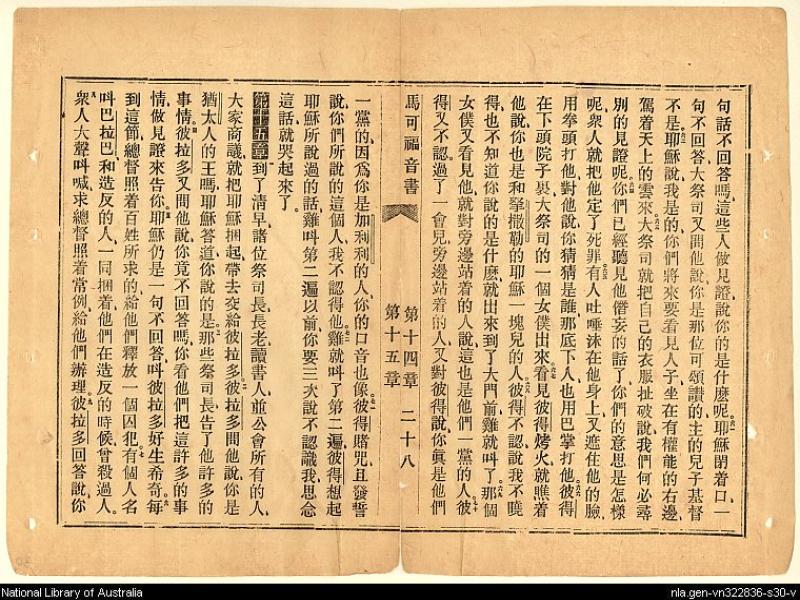 句話不回答嗎、這些人做見證說你的是什麽呢、耶穌閉着口一
句不回答、大祭司又問他說、你是那位可頌讚的主的兒子基督
不是、耶穌說、我是的、你們將來要看見人子坐在有權能的右邊、
駕着天上的雲來、大祭司就把自己的衣服扯破說、我們何必尋
別的見證呢、你們已經聽見他僭妄的話了、你們的意思是怎樣
呢、衆人就把他定了死罪、有人吐唾沫在他身上、又遮住他的臉、
用拳頭打他、對他說、你猜猜是誰、那底下人也用巴掌打他、彼得
在下頭院子裏、大祭司的一個女僕出來、看見彼得烤火、就瞧着
他說、你也是和拿撒勒的耶穌一塊兒的人、彼得不認說、我不曉
得、也不知道你說的是什麽、就出來到了大門前、雞就呌了、那個
女僕又看見他、就對旁邊站着的人說、這也是他們一黨的人、彼
得又不認、過了一會兒、旁邊站着的人又對彼得說、你眞是他們
馬可福音書
第十四章
第十五章
二十八
一黨的、因爲你是加利利的人、你的口音也像、彼得賭咒且發誓
說、你們所說的這個人、我不認得他、雞就呌了第二遍、彼得想起
耶穌所說過的話、雞呌第二遍以前、你要三次說不認識我、思念
這話就哭起來了。
第十五章 到了清早、諸位祭司長、長老、讀書人、並公會所有的人、
大家商議、就把耶穌捆起帶去、交給彼拉多、彼拉多問他說、你是
猶太人的王嗎、耶穌答道、你說的是、那些祭司長告了他許多的
事情、彼拉多又問他說、你竟不回答嗎、你看他們把這許多的事
情做見證來告你、耶穌仍是一句不回答、呌彼拉多好生希奇、每
到這節、總督照着百姓所求的、給他們釋放一個囚犯、有個人名
呌巴拉巴、和造反的人一同捆着、他們在造反的時候、曾殺過人。
衆人大聲呌喊、求總督照着常例給他們辦理、彼拉多回答說、你
National Library of Australia
nla.gen-vn322836-s30-v